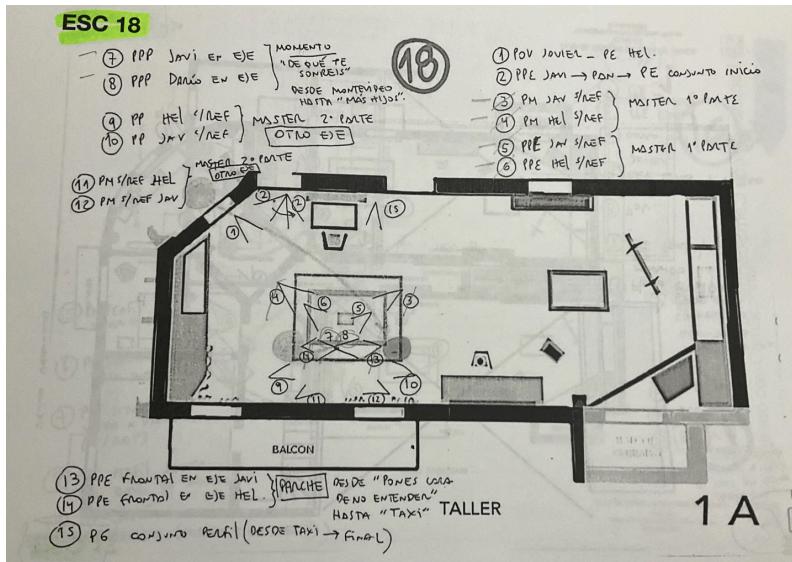 ESC 18
7 PPP JAVI EN EJE
8 PPP DARÍO EN EJE
MOMENTO
"DE QUÉ TE
SONREIS"
DESDE MONTEVIDEO
HASTA "MÁS HIJOS".
18
9 PP HEL S/REF
10 PP JAV S/REF
MASTER 2ª PARTE
OTRO EJE
11 PM S/REF HEL
12 PM S/REF JAV
MASTER 2ª PARTE
OTRO EJE
1 POV JAVIER - PE HEL.
2 PPE JAVI → PAN → PE CONJUNTO INICIO
3 PM JAV S/REF
4 PM HEL S/REF
MASTER 1ª PARTE
5 PPE JAV S/REF
6 PPE HEL S/REF
MASTER 1ª PARTE
2 2 15
1
4 6 5 3
7 8
14 13
9 10
11 12
BALCON
13 PPE FRONTAL EN EJE JAVI
14 PPE FRONTAL EN EJE HEL.
PARCHE
DESDE "PONES CARA
DE NO ENTENDER"
HASTA "TAXI"
TALLER
1 A
15 PG CONJUNTO PERFIL (DESDE TAXI → FINAL)